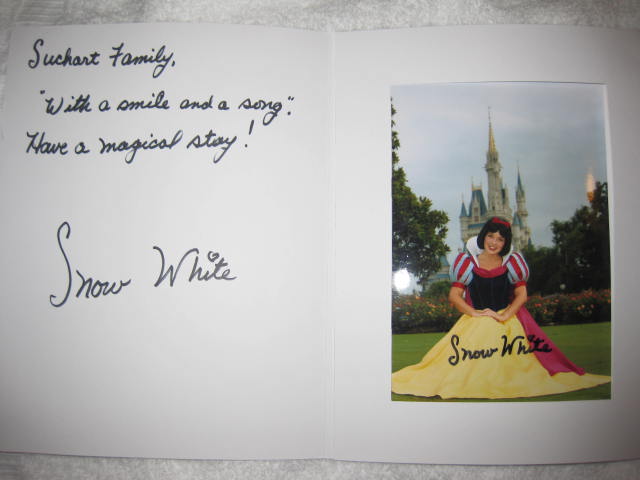 Suchart Family,
"With a smile and a song".
Have a magical stay!
Snow White
Snow White